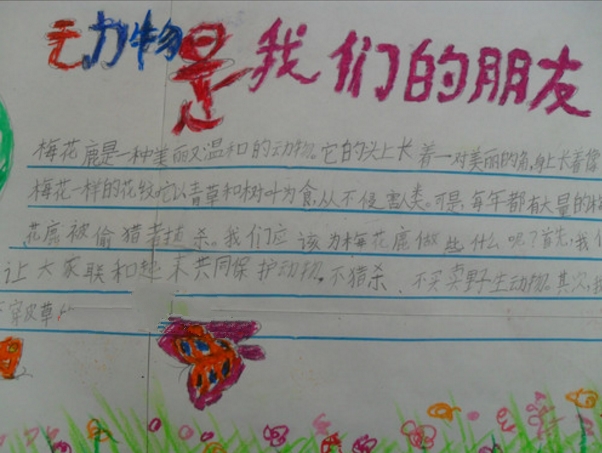 动物是我们的朋友
梅花鹿是一种美丽又温和的动物。它的头上长着一对美丽的角,身上长着像
梅花一样的花纹它以青草和树叶为食,从不侵害人类。可是,每年都有大量的梅
花鹿被偷猎者捕杀。我们应该为梅花鹿做些什么呢?首先,我们
让大家联和起来共同保护动物。不猎杀、不买卖野生动物。其次,我
穿皮草